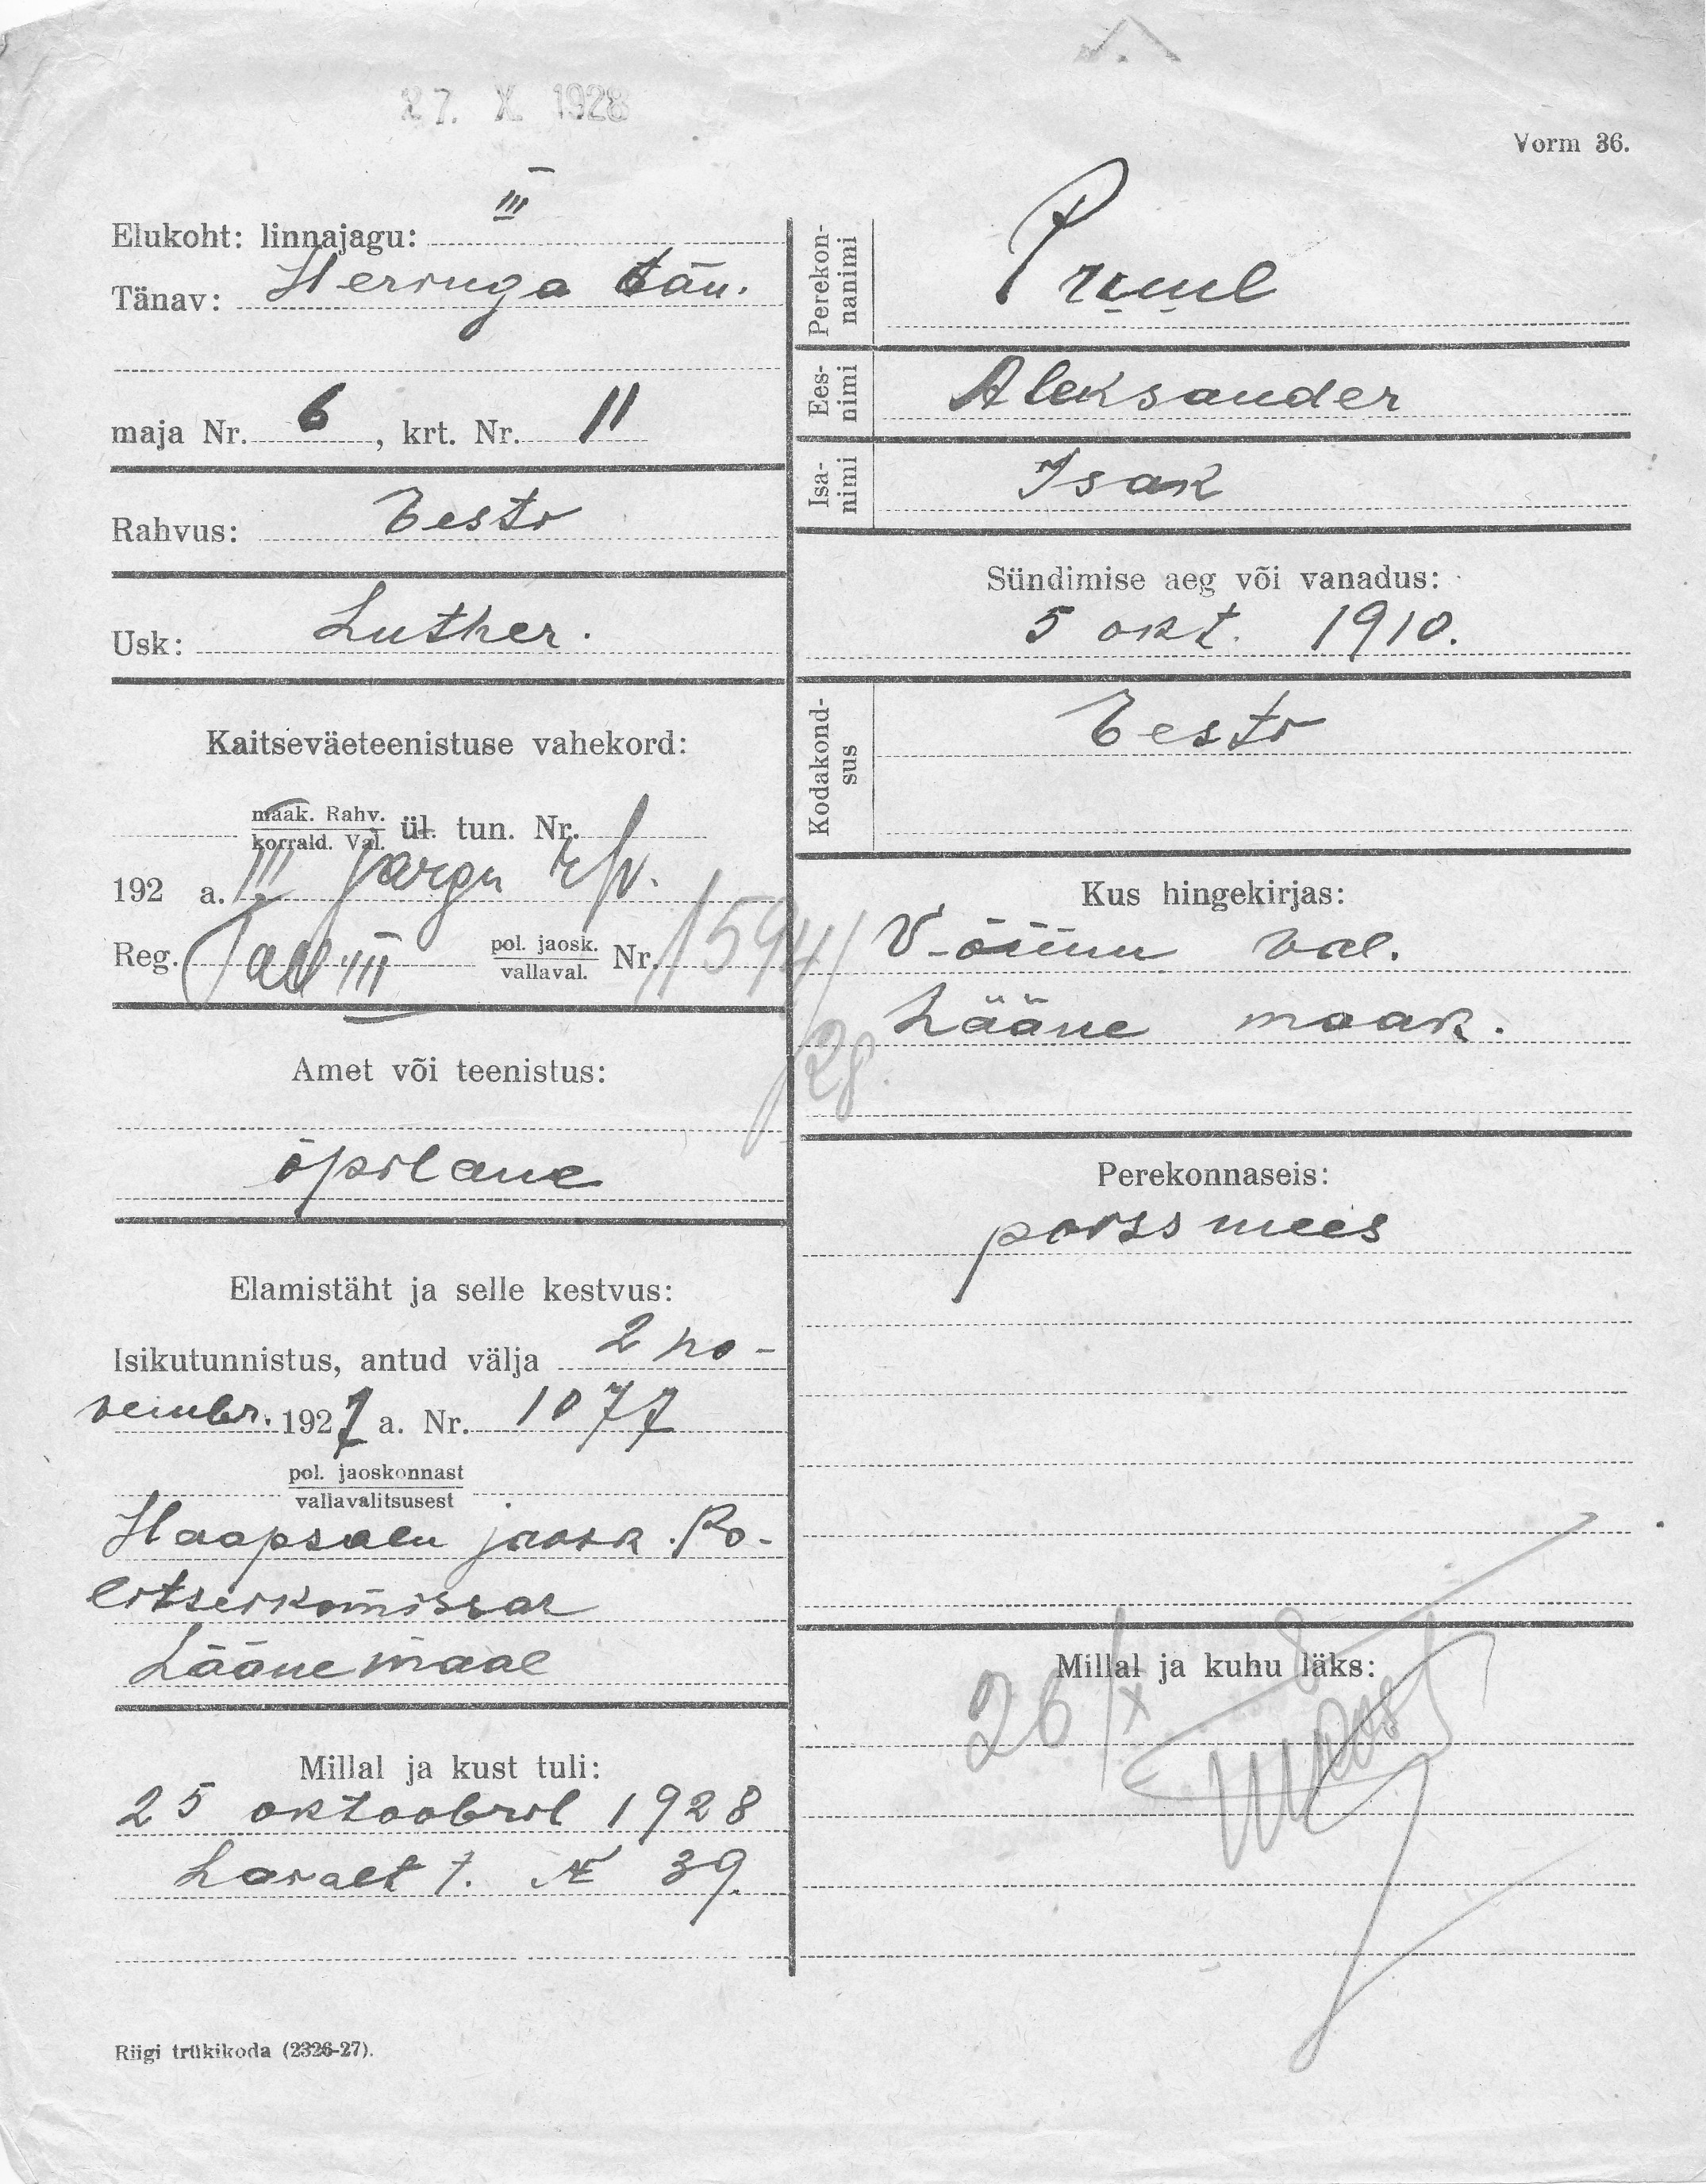 27. X 1928
Vorm 36.
Elukoht: linnajagu: III
Tänav: Heringa tän.
maja Nr. 6, krt. Nr. 11
Rahvus: Eesti
Usk: Luther.
Kaitseväeteenistuse vahekord:
maak. Rahv.
korrald. Val. ül. tun. Nr.
192 a. III järgu
Reg. Tall III pol. jaosk.
vallaval. Nr. 1594/28.
Amet või teenistus:
õpilane
Elamistäht ja selle kestvus:
Isikutunnistus, antud välja 2 no-
vembr. 1927 a. Nr. 1077
pol. jaoskonnast
vallavalitsusest
Haapsalu jaosk. Po-
litseikomissar
Läänemaal
Millal ja kust tuli:
25 oktoobril 1928
t. № 39.
Riigi trükikoda (2326-27).
Perekon-
nanimi
Pruul
Ees-
nimi
Aleksander
Isa-
nimi
Isak
Sündimise aeg või vanadus:
5 okt. 1910.
Kodakond-
sus
Eesti
Kus hingekirjas:
V-õnnu val.
Lääne maak.
Perekonnaseis:
poissmees
Millal ja kuhu läks:
26/X